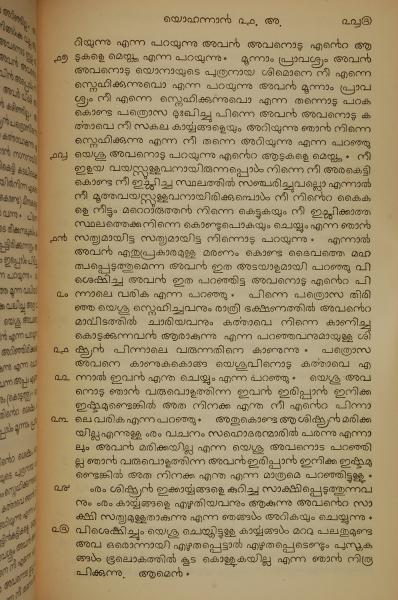 യൊഹന്നാൻ ൨൧. അ. ൨൬൫
റിയുന്നു എന്ന പറയുന്നു അവൻ അവനൊടു എൻറെ ആ
൧൭ ടുകളെ മെയ്ക്ക എന്ന പറയുന്നു * മൂന്നാം പ്രാവശ്യം അവൻ
അവനൊടു യൊനായുടെ പുത്രനായ ശിമൊനെ നീ എന്നെ
സ്നെഹിക്കുന്നുവൊ എന്ന പറയുന്നു അവൻ മൂന്നാം പ്രാവ
ശ്യം നീ എന്നെ സ്നെഹിക്കുന്നുവൊ എന്ന തന്നൊടു പറക
കൊണ്ട പത്രൊസ ദുഃഖിച്ചു പിന്നെ അവൻ അവനൊടു ക
ൎത്താവെ നീ സകല കാൎയ്യങ്ങളെയും അറിയുന്നു ഞാൻ നിന്നെ
സ്നെഹിക്കുന്നു എന്ന നീ തന്നെ അറിയുന്നു എന്ന പറഞ്ഞു
൧൮ യെശു അവനൊടു പറയുന്നു എൻറെ ആടുകളെ മെയ്ക്ക * നീ
ഇളയ വയസ്സുള്ളവനായിരുന്നപ്പൊൾ നിന്നെ നീ അരകെട്ടി
കൊണ്ട നീ ഇച്ശിച്ച സ്ഥലത്തിൽ സഞ്ചരിച്ചുവല്ലൊ എന്നാൽ
നീ മൂത്തവയസ്സുള്ളവനായിരിക്കുമ്പൊൾ നീ നിൻറെ കൈക
ളെ നീട്ടും മറെറാരുത്തൻ നിന്നെ കെട്ടുകയും നീ ഇച്ശിക്കാത്ത
സ്ഥലത്തെക്കുനിന്നെ കൊണ്ടുപൊകയും ചെയ്യും എന്ന ഞാൻ
൧൯ സത്യമായിട്ട സത്യമായിട്ട നിന്നൊടു പറയുന്നു * എന്നാൽ
അവൻ എതുപ്രകാരമുള്ള മരണം കൊണ്ട ദൈവത്തെ മഹ
ത്വപ്പെടുത്തുമെന്ന അവൻ ഇത അടയാളമായി പറഞ്ഞു വി
ശെഷിച്ച അവൻ ഇത പറഞ്ഞിട്ട അവനൊടു എൻറെ പി
൨൦ ന്നാലെ വരിക എന്ന പറഞ്ഞു * പിന്നെ പത്രൊസ തിരി
ഞ്ഞ യെശു സ്നെഹിച്ചവനും രാത്രി ഭക്ഷണത്തിൽ അവൻറെ
മാൎവിടത്തിൽ ചാരിയവനും കൎത്താവെ നിന്നെ കാണിച്ചു
കൊടുക്കുന്നവൻ ആരാകുന്നു എന്ന പറഞ്ഞവനുമായുള്ള ശി
൨൧ ഷ്യൻ പിന്നാലെ വരുന്നതിനെ കാണുന്നു * പത്രൊസ
അവനെ കാണുകകൊണ്ട യെശുവിനൊടു കൎത്താവെ എ
൨൨ ന്നാൽ ഇവൻ എന്ത ചെയ്യും എന്ന പറഞ്ഞു * യെശു അവ
നൊടു ഞാൻ വരുവൊളത്തിന്ന ഇവൻ ഇരിപ്പാൻ ഇനിക്ക
ഇഷ്ടമുണ്ടെങ്കിൽ അത നിനക്ക എന്ത നീ എൻറെ പിന്നാ
൨൩ ലെ വരിക എന്ന പറഞ്ഞു * അതുകൊണ്ട ആ ശിഷ്യൻ മരിക്ക
യില്ല എന്നുള്ള ൟ വചനം സഹൊദരന്മാരിൽ പരന്നു എന്നാ
ലും അവൻ മരിക്കയില്ല എന്ന യെശു അവനൊടു പറഞ്ഞി
ല്ല ഞാൻ വരുവൊളത്തിന്ന അവൻ ഇരിപ്പാൻ ഇനിക്ക ഇഷ്ടമു
ണ്ടെങ്കിൽ അത നിനക്ക എന്ത എന്ന മാത്രമെ പറഞ്ഞിട്ടുള്ളു *
൨൪ ൟ ശിഷ്യൻ ഇക്കാൎയ്യങ്ങളെ കുറിച്ച സാക്ഷിപ്പെടുത്തുന്നവ
നും ൟ കാൎയ്യങ്ങളെ എഴുതിയവനും ആകുന്നു അവൻറെ സാ
ക്ഷി സത്യമുള്ളതാകുന്നു എന്ന ഞങ്ങൾ അറികയും ചെയ്യുന്നു *
൨൫ വിശെഷിച്ചും യെശു ചെയ്തിട്ടുള്ള കാൎയ്യങ്ങൾ മറ്റു പലതുമുണ്ട
അവ ഒരൊന്നായി എഴുതപ്പെട്ടാൽ എഴുതപ്പെടെണ്ടും പുസ്തക
ങ്ങൾ ഭൂലൊകത്തിൽ കൂടെ കൊള്ളുകയില്ല എന്ന ഞാൻ നിരൂ
പിക്കുന്നു. ആമെൻ *